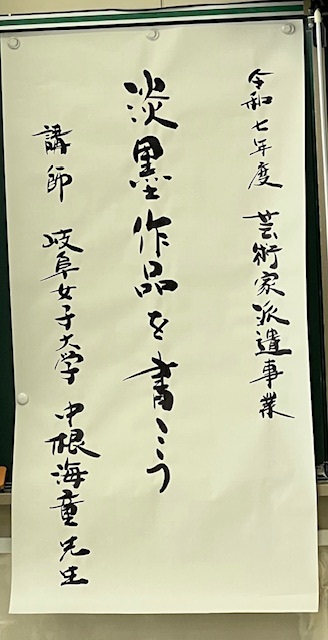 令和七年度 芸術家派遣事業
淡墨作品を書こう
講師 岐阜女子大学 中根海童先生